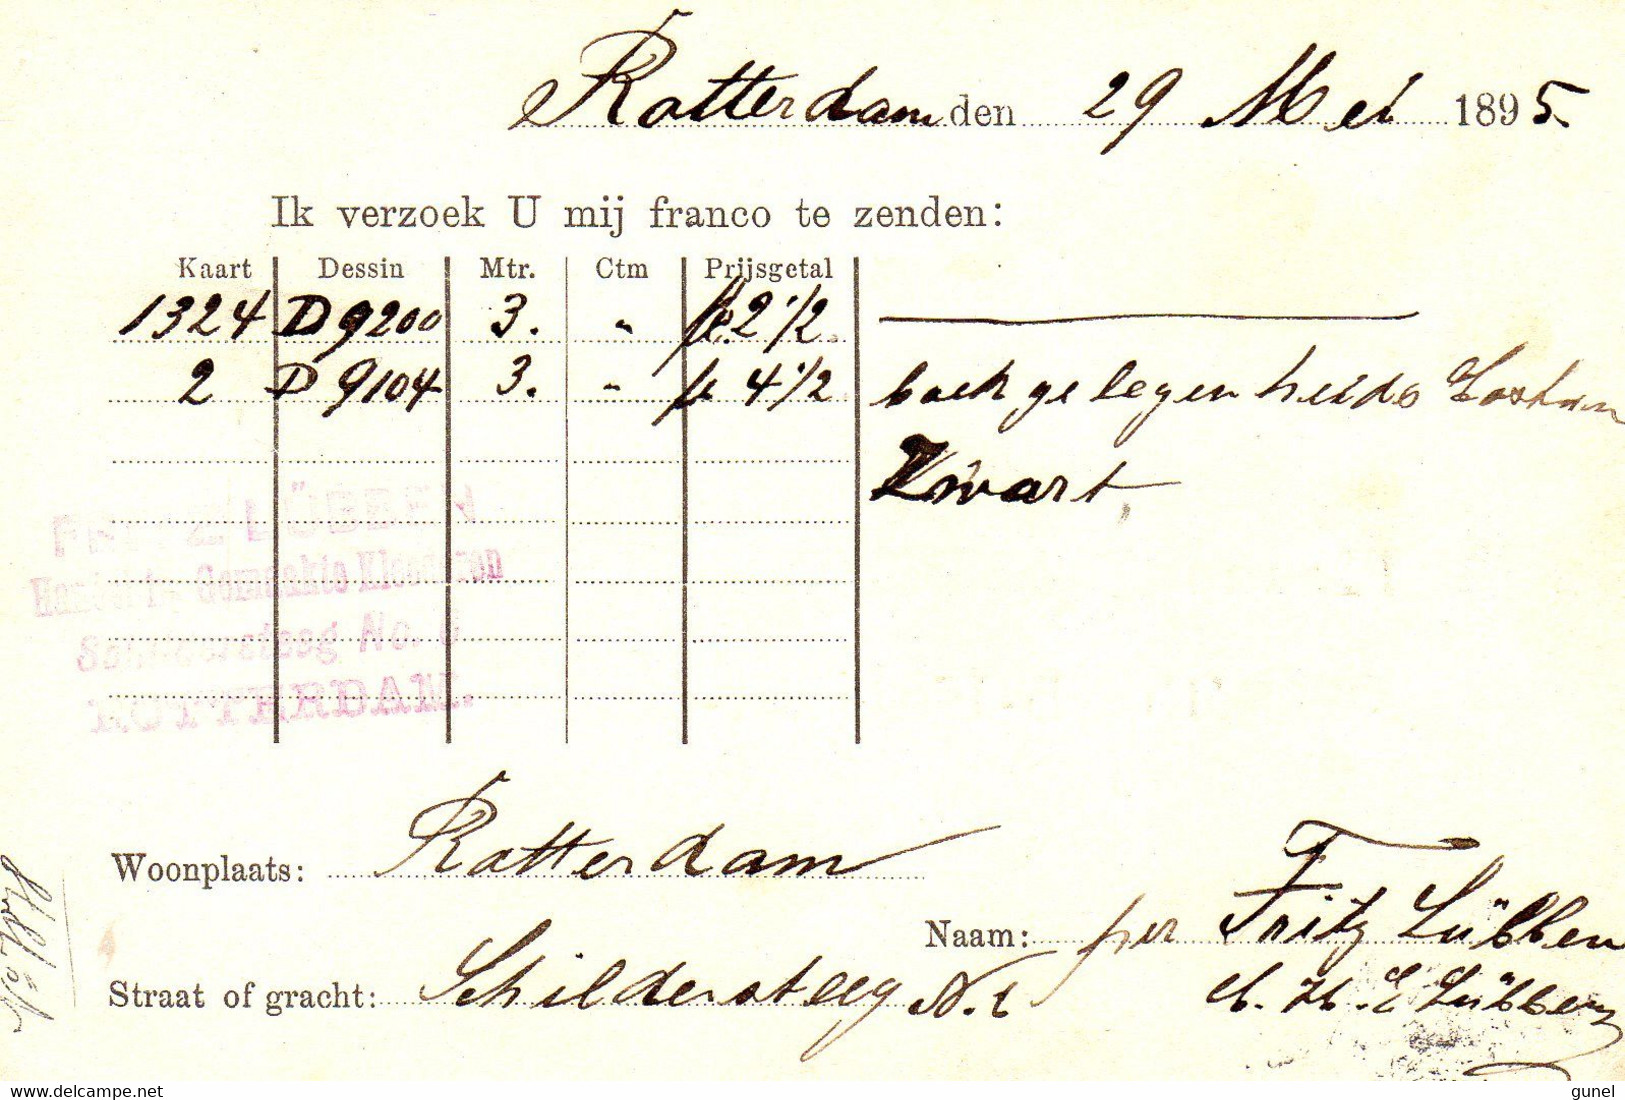 Rotterdam den 29 Mei 1895.
Ik verzoek U mij franco te zenden:
Kaart Dessin Mtr. Ctm Prijsgetal
1324 D 9200 3. " fl. 2 1/2
2 D 9104 3. " fl 4 1/2
gelegenheids
Zwart
FRITZ LÜBBEN
Handel in Gemaakte Kleederen
Schildersteeg No.
ROTTERDAM.
Woonplaats: Rotterdam
Naam: per Fritz Lübben
Straat of gracht: Schildersteeg N.
Lübben
delcampe.net
gunel